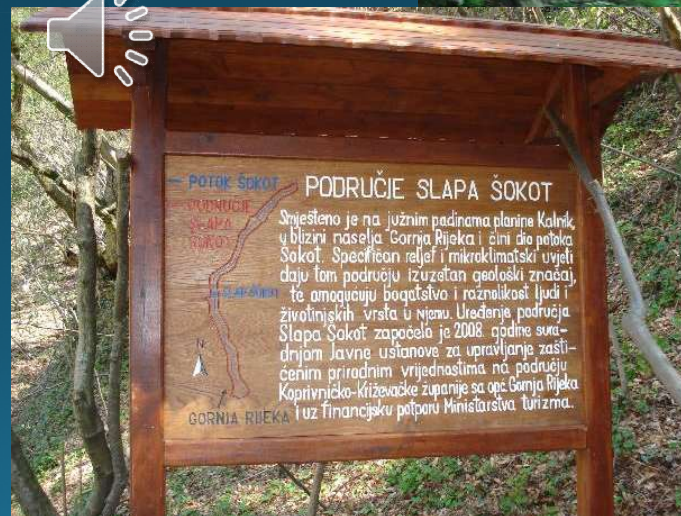 PODRUČJE SLAPA ŠOKOT
Smješteno je na južnim padinama planine Kalnik,
u blizini naselja Gornja Rijeka i čini dio potoka
Šokot. Specifičan reljef i mikroklimatski uvjeti
daju tom području izuzetan geološki značaj,
te omogućuju bogatstvo i raznolikost ljudi i
životinjskih vrsta u njemu. Uređenje područja
Slapa Šokot započelo je 2008. godine sura-
dnjom Javne ustanove za upravljanje zašti-
ćenim prirodnim vrijednostima na području
Koprivničko-Križevačke županije sa opć. Gornja Rijeka
i uz financijsku potporu Ministarstva turizma.
POTOK ŠOKOT
PODRUČJE
SLAPA
ŠOKOT
GORNJA RIJEKA